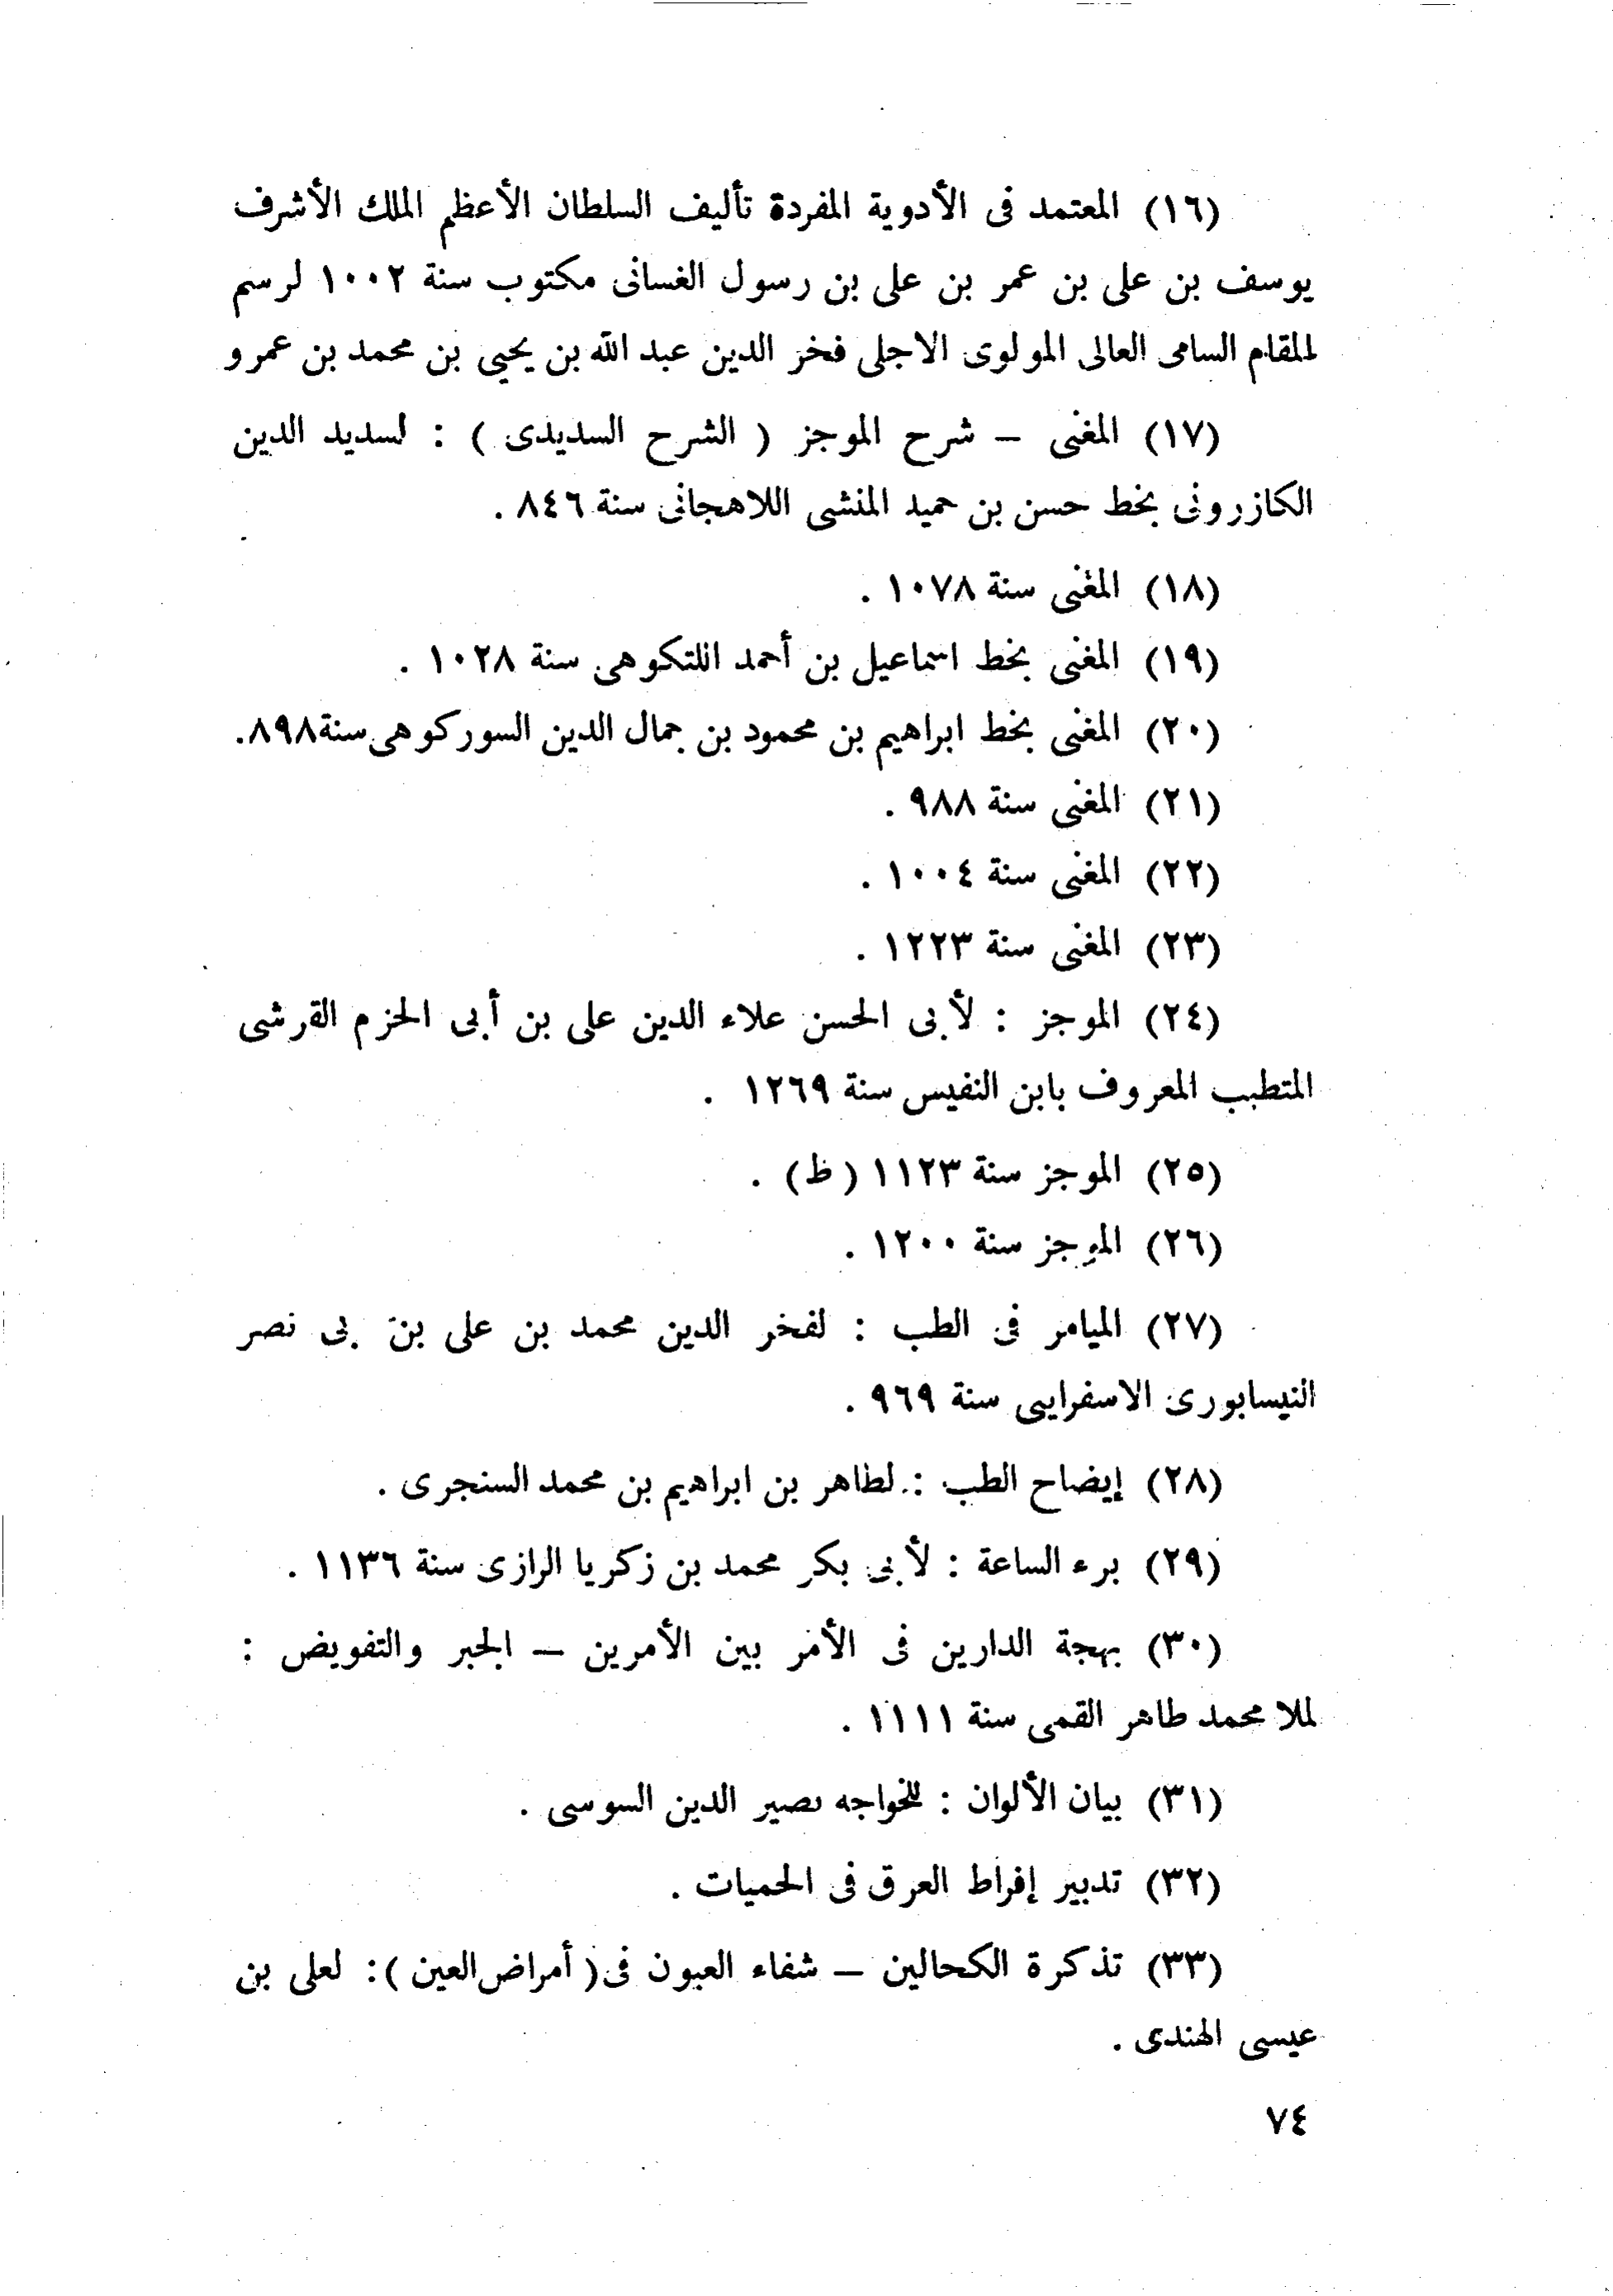 (١٦) المعتمد فى الأدوية المفردة تأليف السلطان الأعظم الملك الأشرف
يوسف بن على بن عمر بن على بن رسول الغسانى مكتوب سنة ١٠٠٢ لرسم
المقام السامى العالى المولوى الاجلى فخر الدين عبد الله بن يحيى بن محمد بن عمرو
(١٧) المغنى – شرح الموجز ( الشرح السديدى ) : لسديد الدين
الكازرونى بخط حسن بن حميد المنشى اللاهجانى سنة ٨٤٦ .
(١٨) المغنى سنة ١٠٧٨ .
(١٩) المغنى بخط اسماعيل بن أحمد اللتكوهى سنة ١٠٢٨ .
(٢٠) المغنى بخط ابراهيم بن محمود بن جمال الدين السوركوهى سنة ٨٩٨.
(٢١) المغنى سنة ٩٨٨ .
(٢٢) المغنى سنة ١٠٠٤ .
(٢٣) المغنى سنة ١٢٢٣ .
(٢٤) الموجز : لأبى الحسن علاء الدين على بن أبى الحزم القرشى
المتطبب المعروف بابن النفيس سنة ١٢٦٩ .
(٢٥) الموجز سنة ١١٢٣ (ظ) .
(٢٦) الموجز سنة ١٢٠٠ .
(٢٧) الميامر فى الطب : لفخر الدين محمد بن على بن بى نصر
النيسابورى الاسفرايى سنة ٩٦٩ .
(٢٨) إيضاح الطب : لطاهر بن ابراهيم بن محمد السنجرى .
(٢٩) برء الساعة : لأبى بكر محمد بن زكريا الرازى سنة ١١٣٦ .
(٣٠) بهجة الدارين فى الأمر بين الأمرين – الجبر والتفويض :
لملا محمد طاهر القمى سنة ١١١١ .
(٣١) بيان الألوان : للخواجه نصير الدين السوسى .
(٣٢) تدبير إفراط العرق فى الحميات .
(٣٣) تذكرة الكحالين – شفاء العيون فى ( أمراض العين ) : لعلى بن
عيسى الهندى .
٧٤